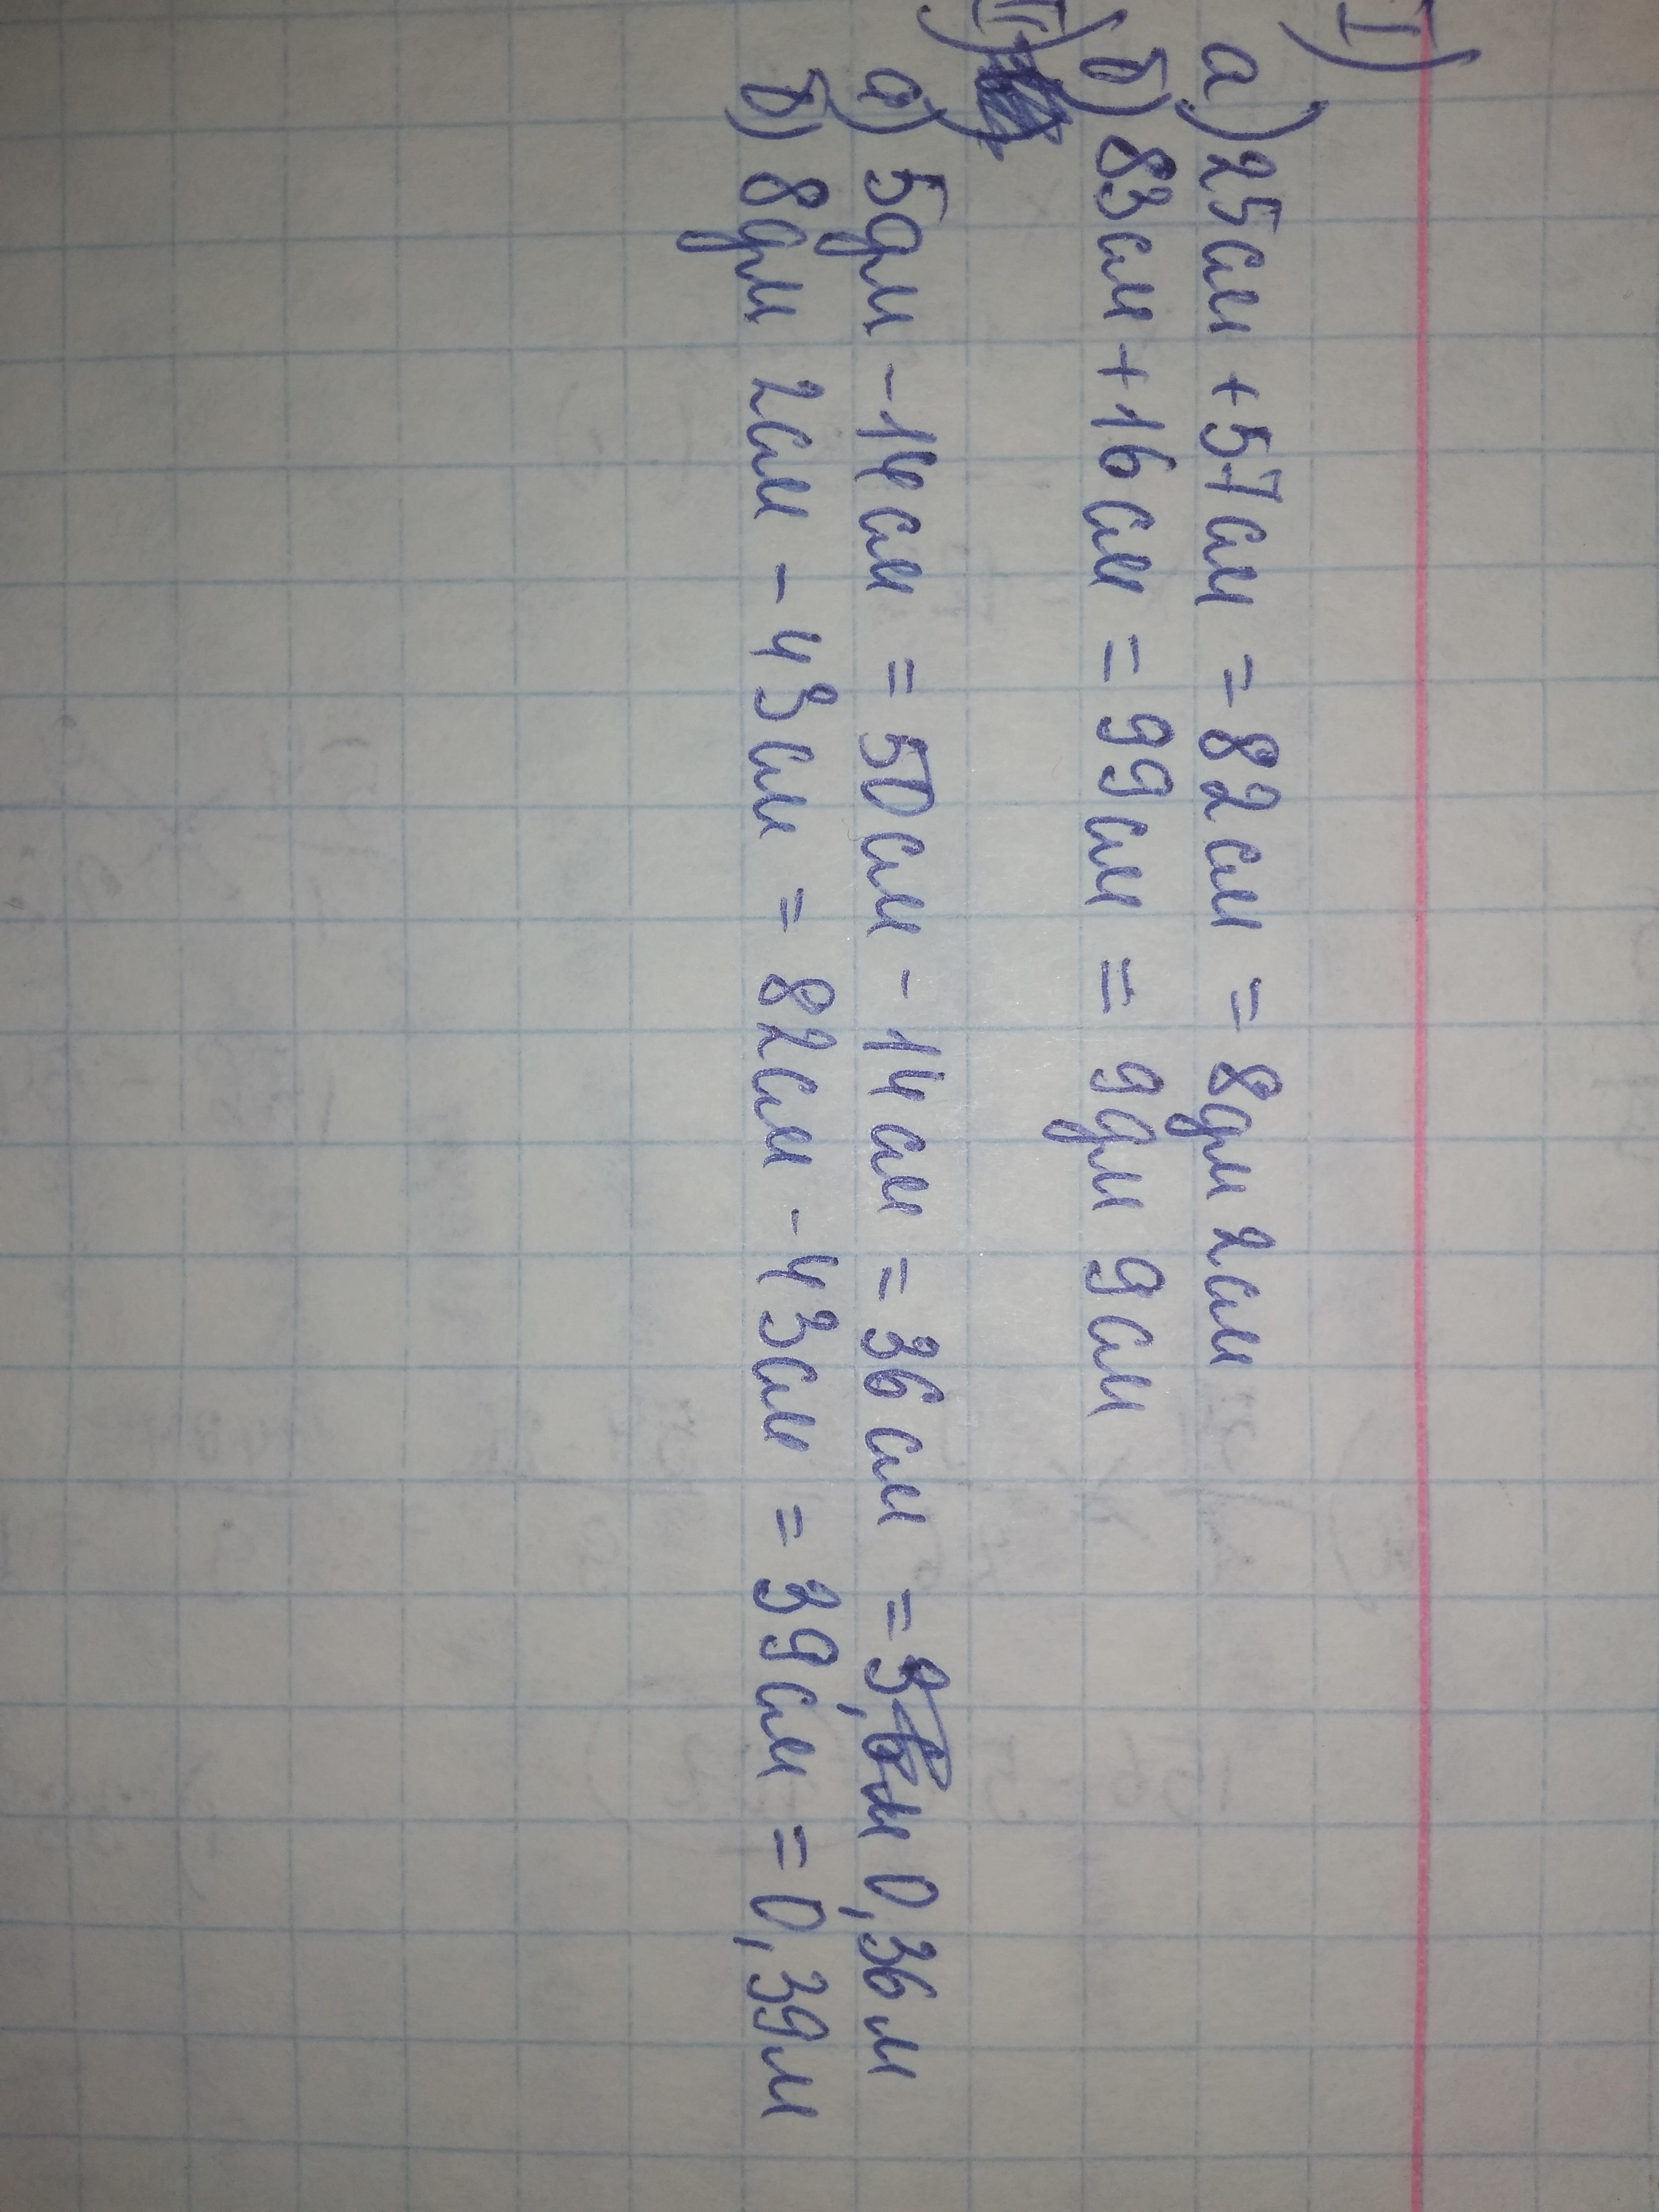 I)
а) 25см + 57см = 82см = 8дм 2см
б) 83см + 16см = 99см = 9дм 9см
II)
а) 5дм - 14см = 50см - 14см = 36см = 0,36м
б) 8дм 2см - 43см = 82см - 43см = 39см = 0,39м